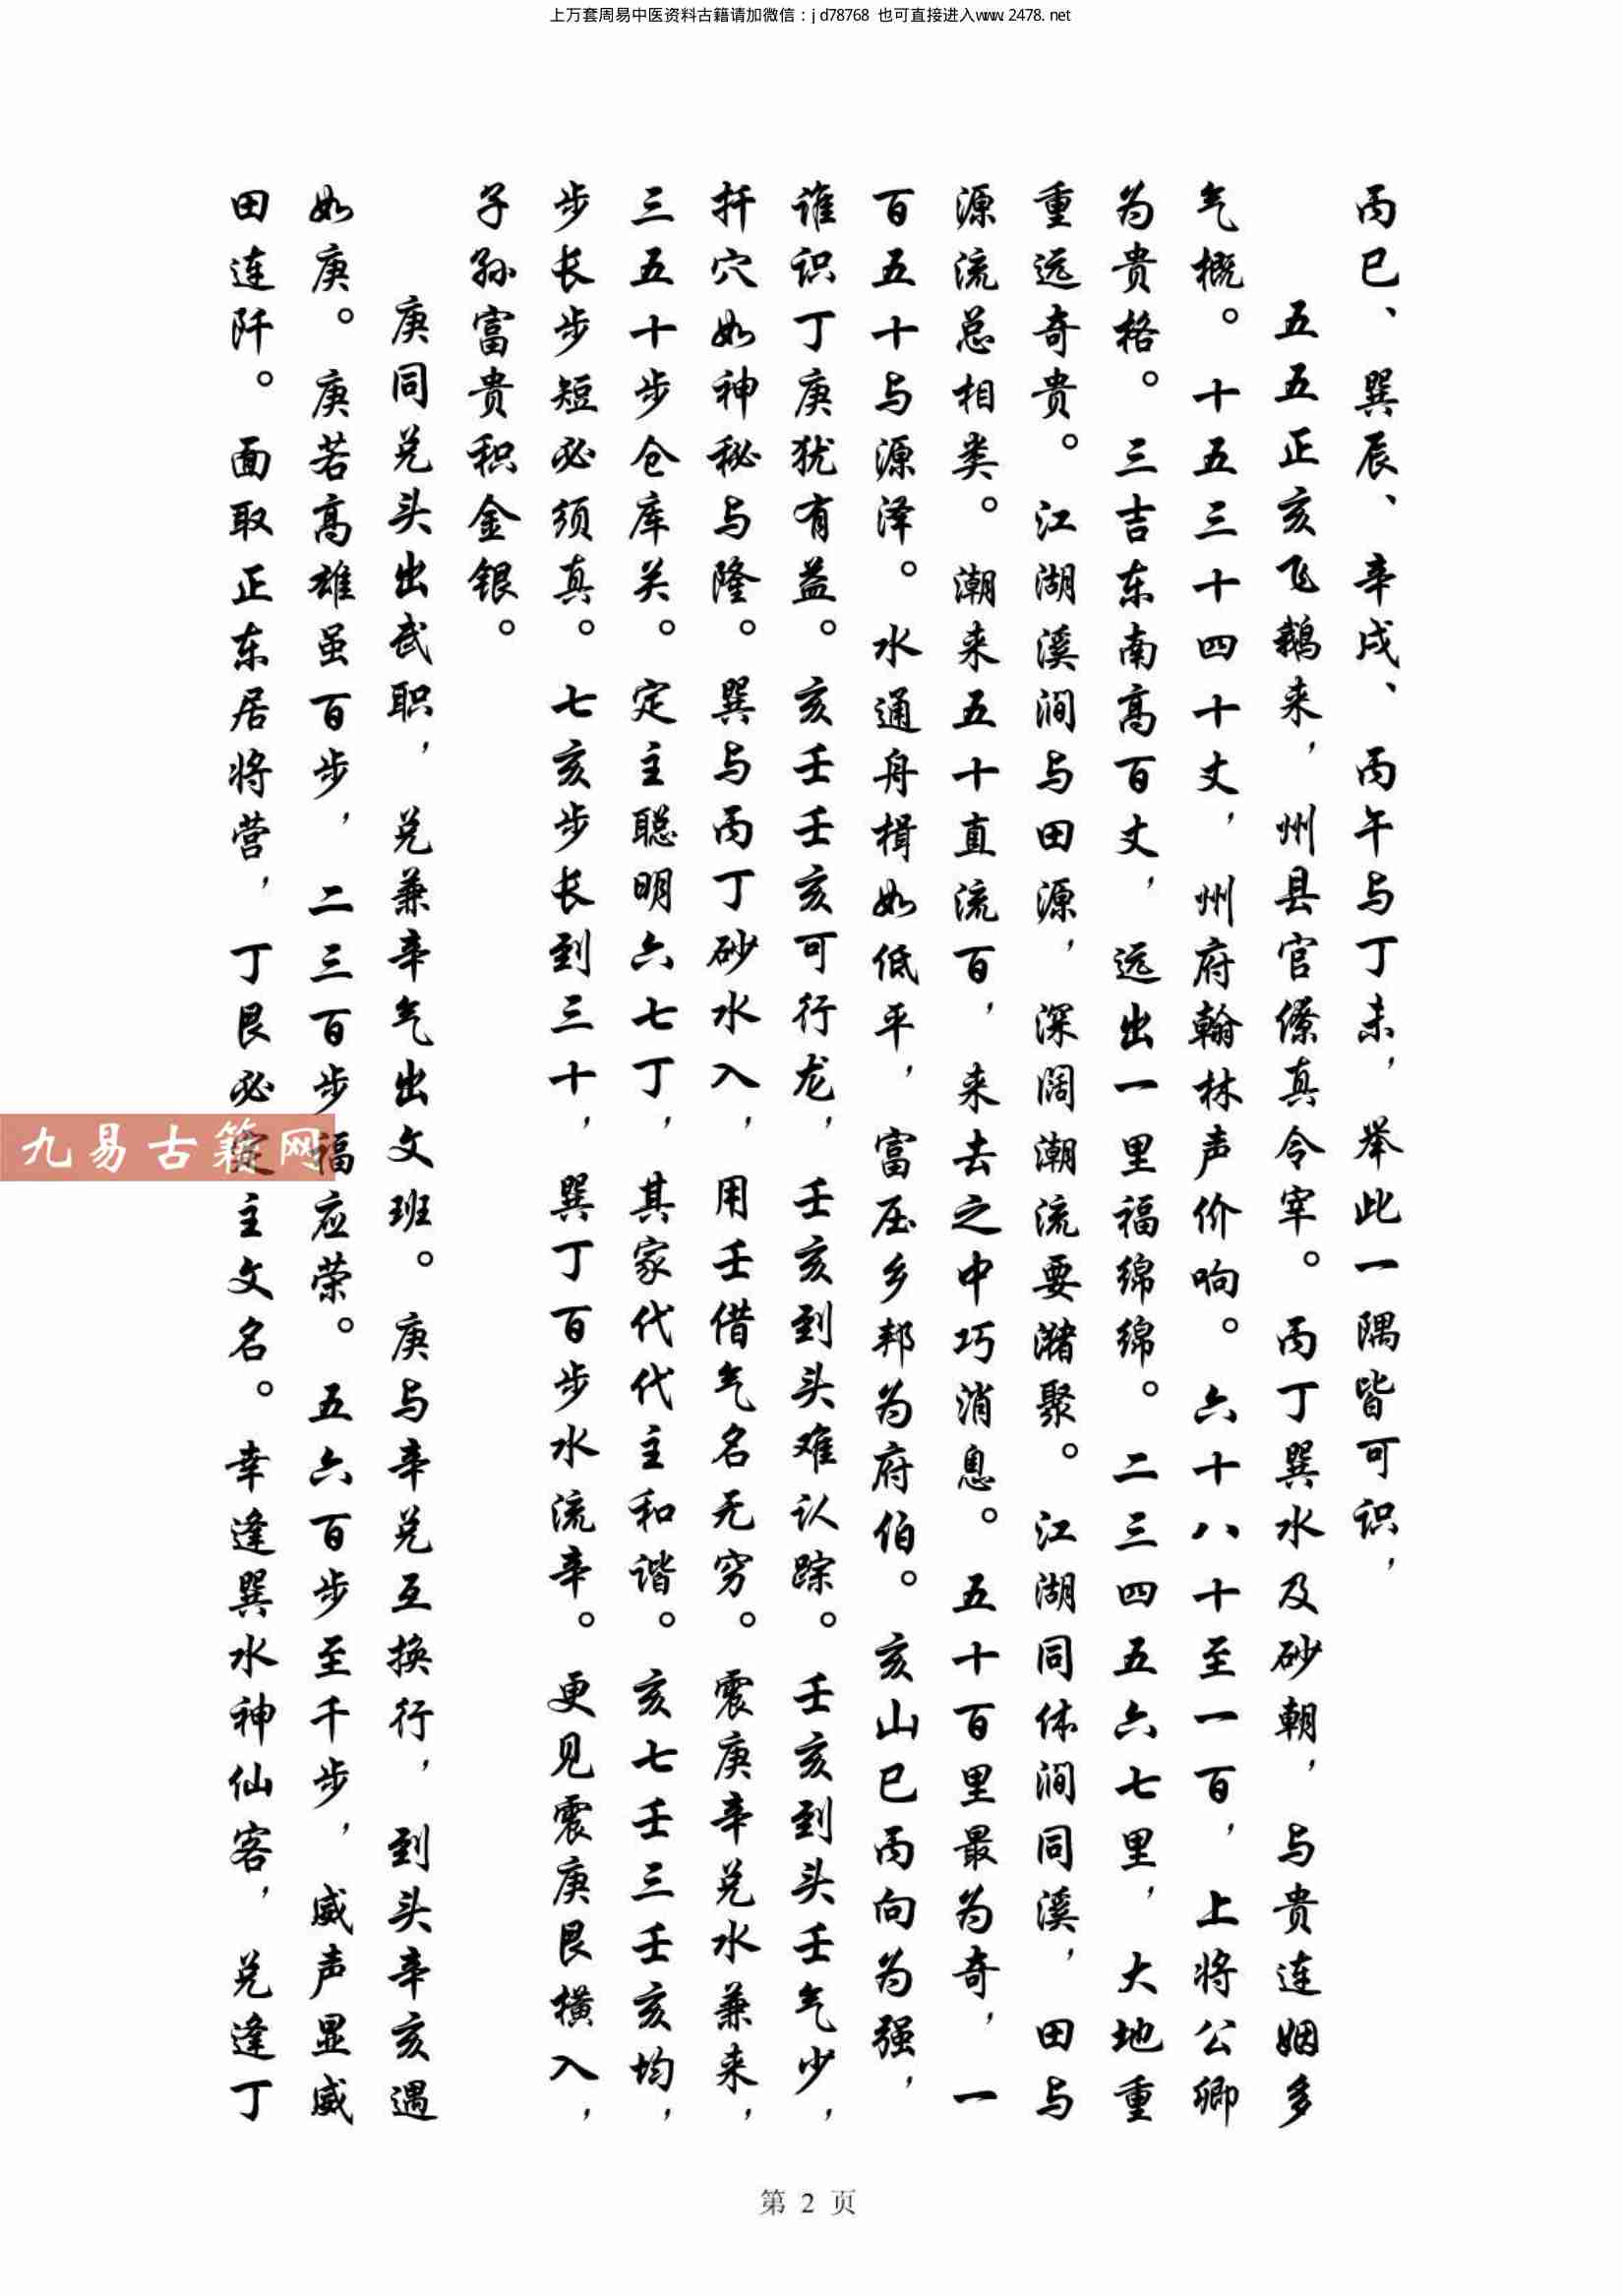 上万套周易中医资料古籍请加微信：jd78768 也可直接进入www.2478.net
丙巳、巽辰、辛戌、丙午与丁未，举此一隅皆可识，
五五正亥飞鹅来，州县官僚真令宰。丙丁巽水及砂朝，与贵连姻多
气概。十五三十四十丈，州府翰林声价响。六十八十至一百，上将公卿
为贵格。三吉东南高百丈，远出一里福绵绵。二三四五六七里，大地重
重远奇贵。江湖溪涧与田源，深阔潮流要潴聚。江湖同体涧同溪，田与
源流总相类。潮来五十直流百，来去之中巧消息。五十百里最为奇，一
百五十与源泽。水通舟楫如低平，富压乡邦为府伯。亥山巳丙向为强，
谁识丁庚犹有益。亥壬壬亥可行龙，壬亥到头难认踪。壬亥到头壬气少，
扦穴如神秘与隆。巽与丙丁砂水入，用壬借气名无穷。震庚辛兑水兼来，
三五十步仓库关。定主聪明六七丁，其家代代主和谐。亥七壬三壬亥均，
步长步步短必须真。七亥步长到三十，巽丁百步水流辛。更见震庚艮横入，
子孙富贵积金银。
庚同兑头出武职，兑兼辛气出文班。庚与辛兑互换行，到头辛亥遇
如庚。庚若高雄虽百步，二三百步福应荣。五六百步至千步，威声显威
田连阡。面取正东居将营，丁艮必定主文名。幸逢巽水神仙客，兑逢丁
九易古籍网
第 2 页